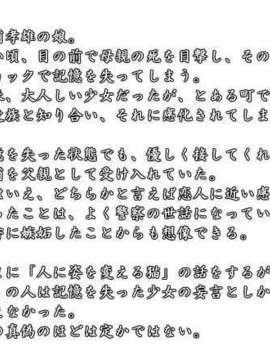 孝雄の娘。
い頃、目の前で母親の死を目撃し、その
ョックで記憶を失ってしまう。
、大人しい少女だったが、とある町で
族と知り合い、それに感化されてしま
を失った状態でも、優しく接してくれ
を父親として受け入れていた。
いえ、どちらかと言えば恋人に近い感
ったことは、よく警察の世話になってい
に嫉妬したことからも想像できる。
に『人に姿を変える猫』の話をするが
の人は記憶を失った少女の妄言としか
えなかった。
の真偽のほどは定かではない。